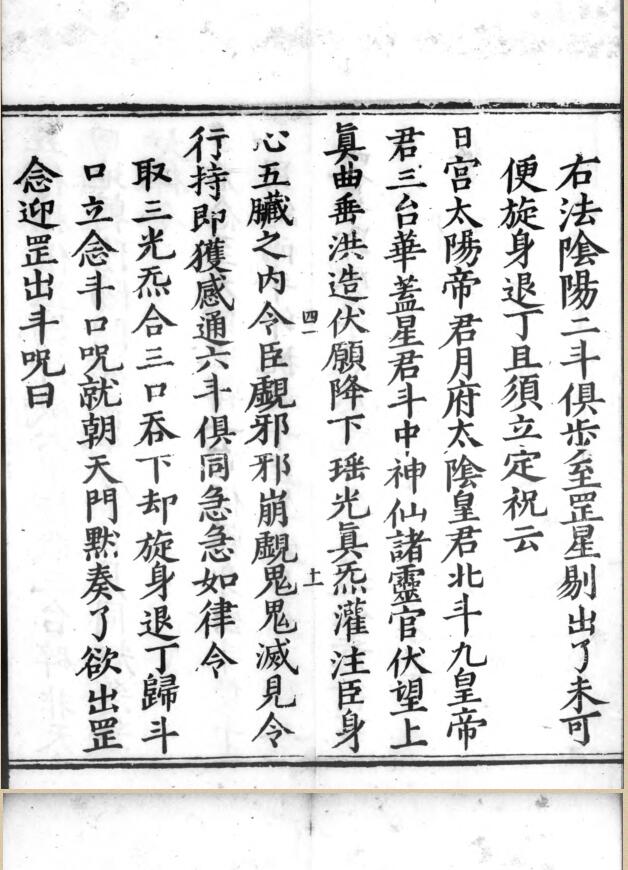 右法陰陽二斗俱步至罡星剔出了未可
便旋身退丁且須立定祝云
日宮太陽帝君月府太陰皇君北斗九皇帝
君三台華蓋星君斗中神仙諸靈官伏望上
眞曲垂洪造伏願降下瑶光眞炁灌注臣身
四一
十一
心五臟之内令臣覷邪邪崩覷鬼鬼滅見令
行持即獲感通六斗俱同急急如律令
取三光炁合三口吞下却旋身退丁歸斗
口立念斗口呪就朝天門黙奏了欲出罡
念迎罡出斗呪曰